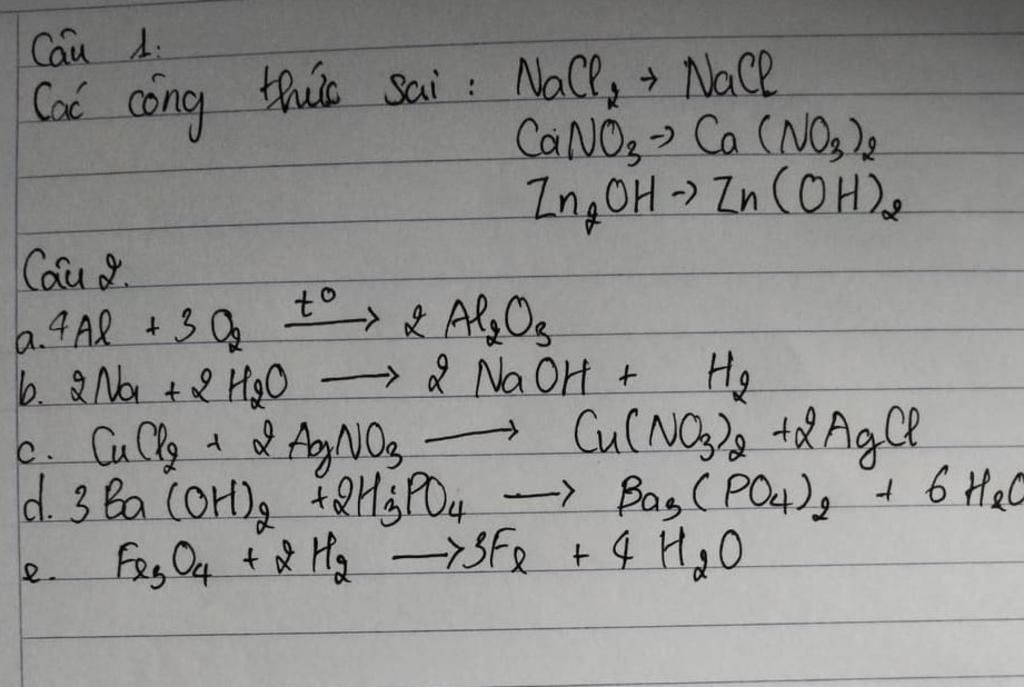 Câu 1:
Các công thức sai : NaCl₂ → NaCl
CaNO₃ → Ca(NO₃)₂
Zn₂OH → Zn(OH)₂
Câu 2.
a. 4Al + 3O₂ t° → 2 Al₂O₃
b. 2Na + 2 H₂O → 2 NaOH + H₂
c. CuCl₂ + 2 AgNO₃ → Cu(NO₃)₂ + 2AgCl
d. 3Ba(OH)₂ + 2H₃PO₄ → Ba₃(PO₄)₂ + 6 H₂O
e. Fe₃O₄ + 2 H₂ → 3Fe + 4 H₂O